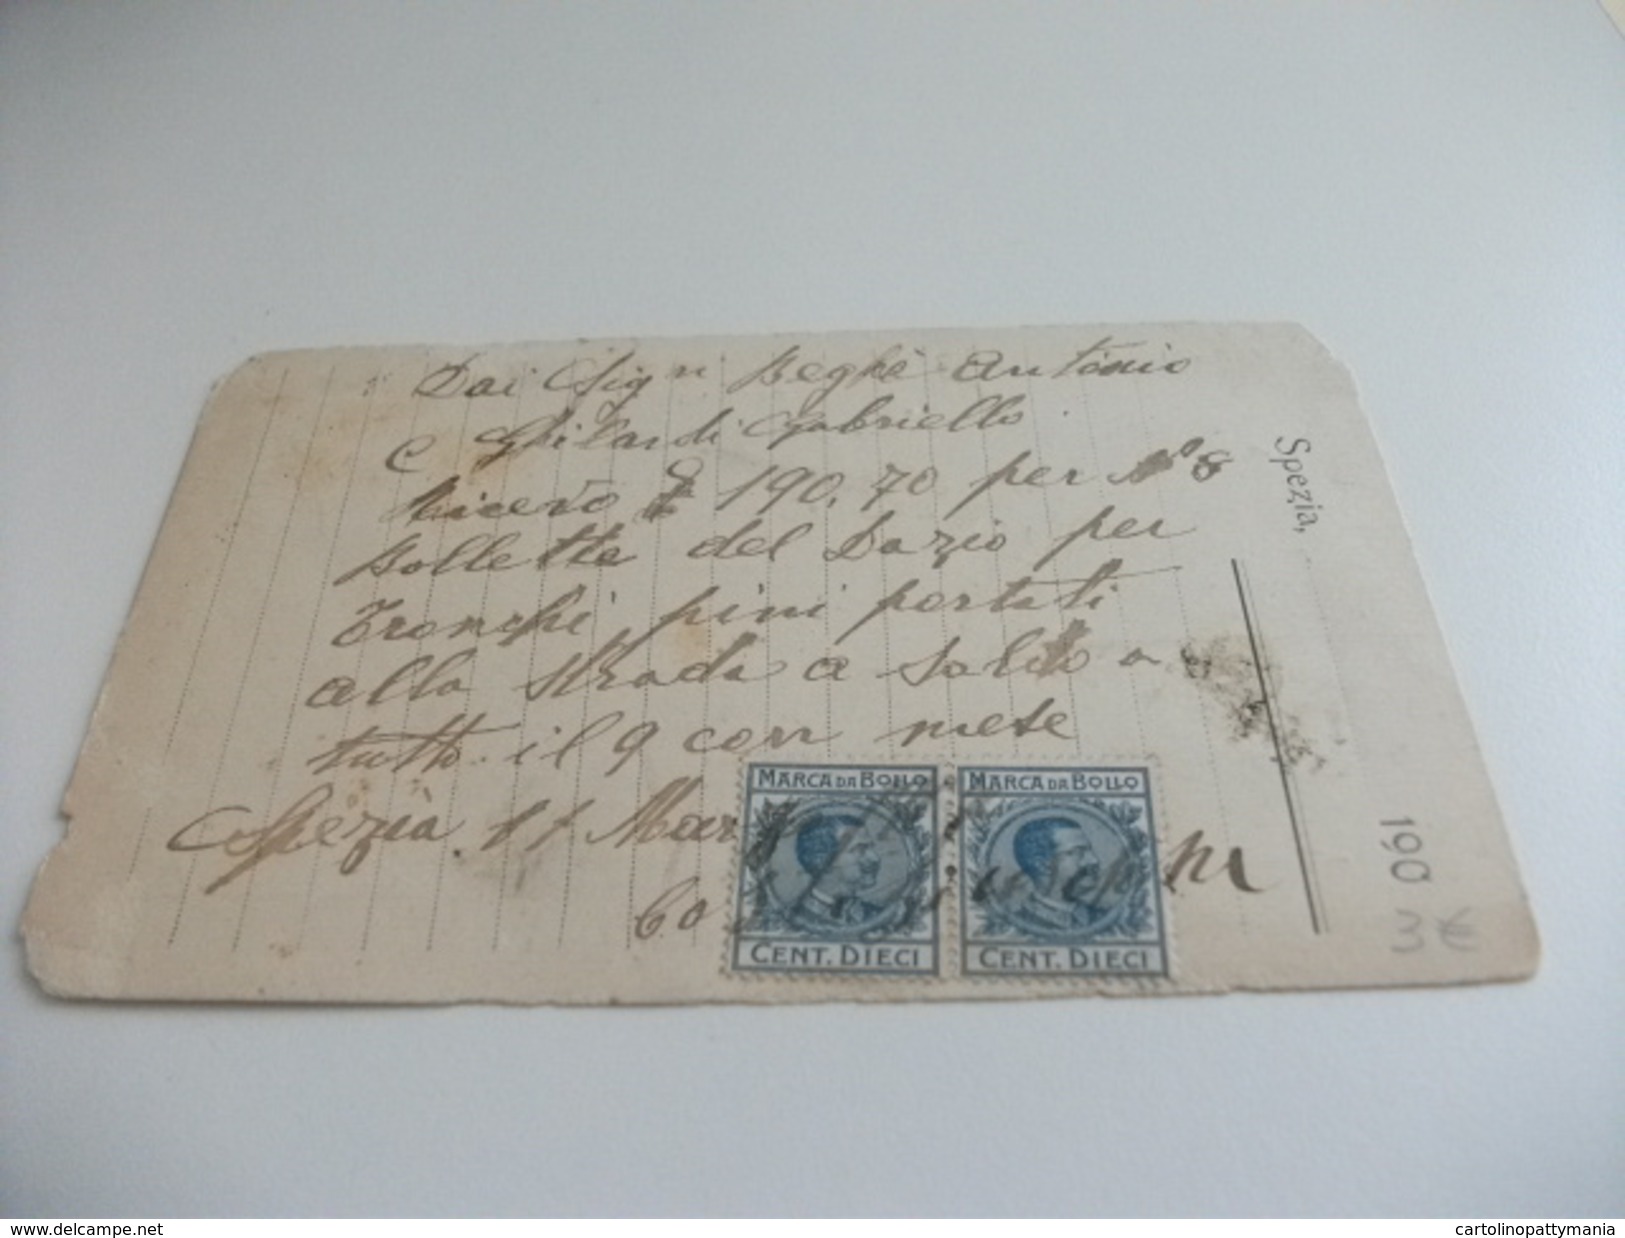 Dai Sign Beghè Antonio
e Ghilardi Gabriello
Ricevo £ 190,70 per N° 8
bollette del Dazio per
Tronchi pini portati
alla strada a saldo a
tutto il 9 corr mese
Spezia, 11 Mar
MARCA DA BOLLO
CENT. DIECI
MARCA DA BOLLO
CENT. DIECI
Spezia,
190
3 €
delcampe.net
cartolinopattymania